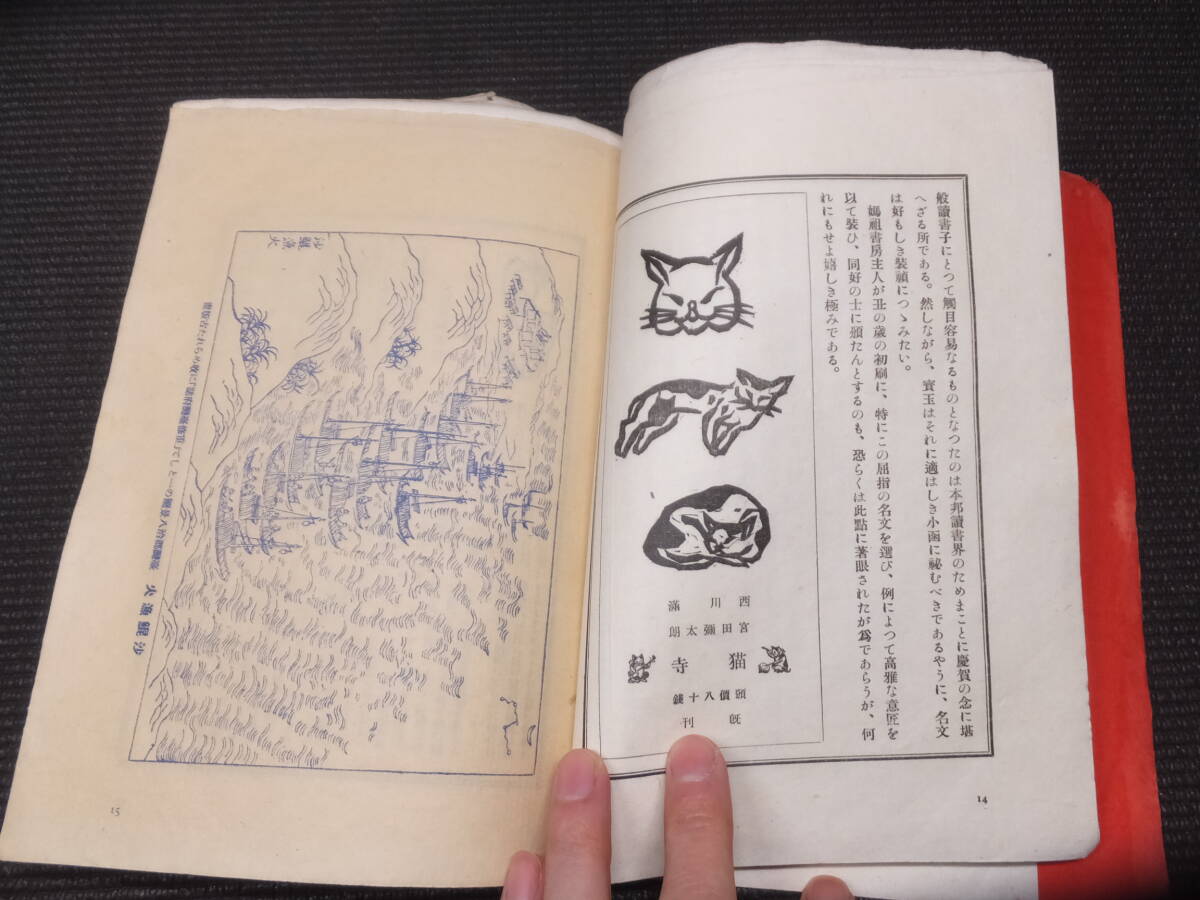 般讀書子にとつて觸目容易なるものとなつたのは本邦讀書界のためまことに慶賀の念に堪
へざる所である。然しながら、寶玉はそれに適はしき小凾に祕むべきであるやうに、名文
は好もしき裝幀につゝみたい。
媽祖書房主人が丑の歳の初刷に、特にこの屈指の名文を選び、例によつて高雅な意匠を
以て裝ひ、同好の士に頒たんとするのも、恐らくは此點に著眼されたが爲であらうが、何
れにもせよ嬉しき極みである。
西川滿
宮田彌太朗
猫寺
頒價八十錢
既刊
14
沙鯤漁火
沙鯤漁火
15